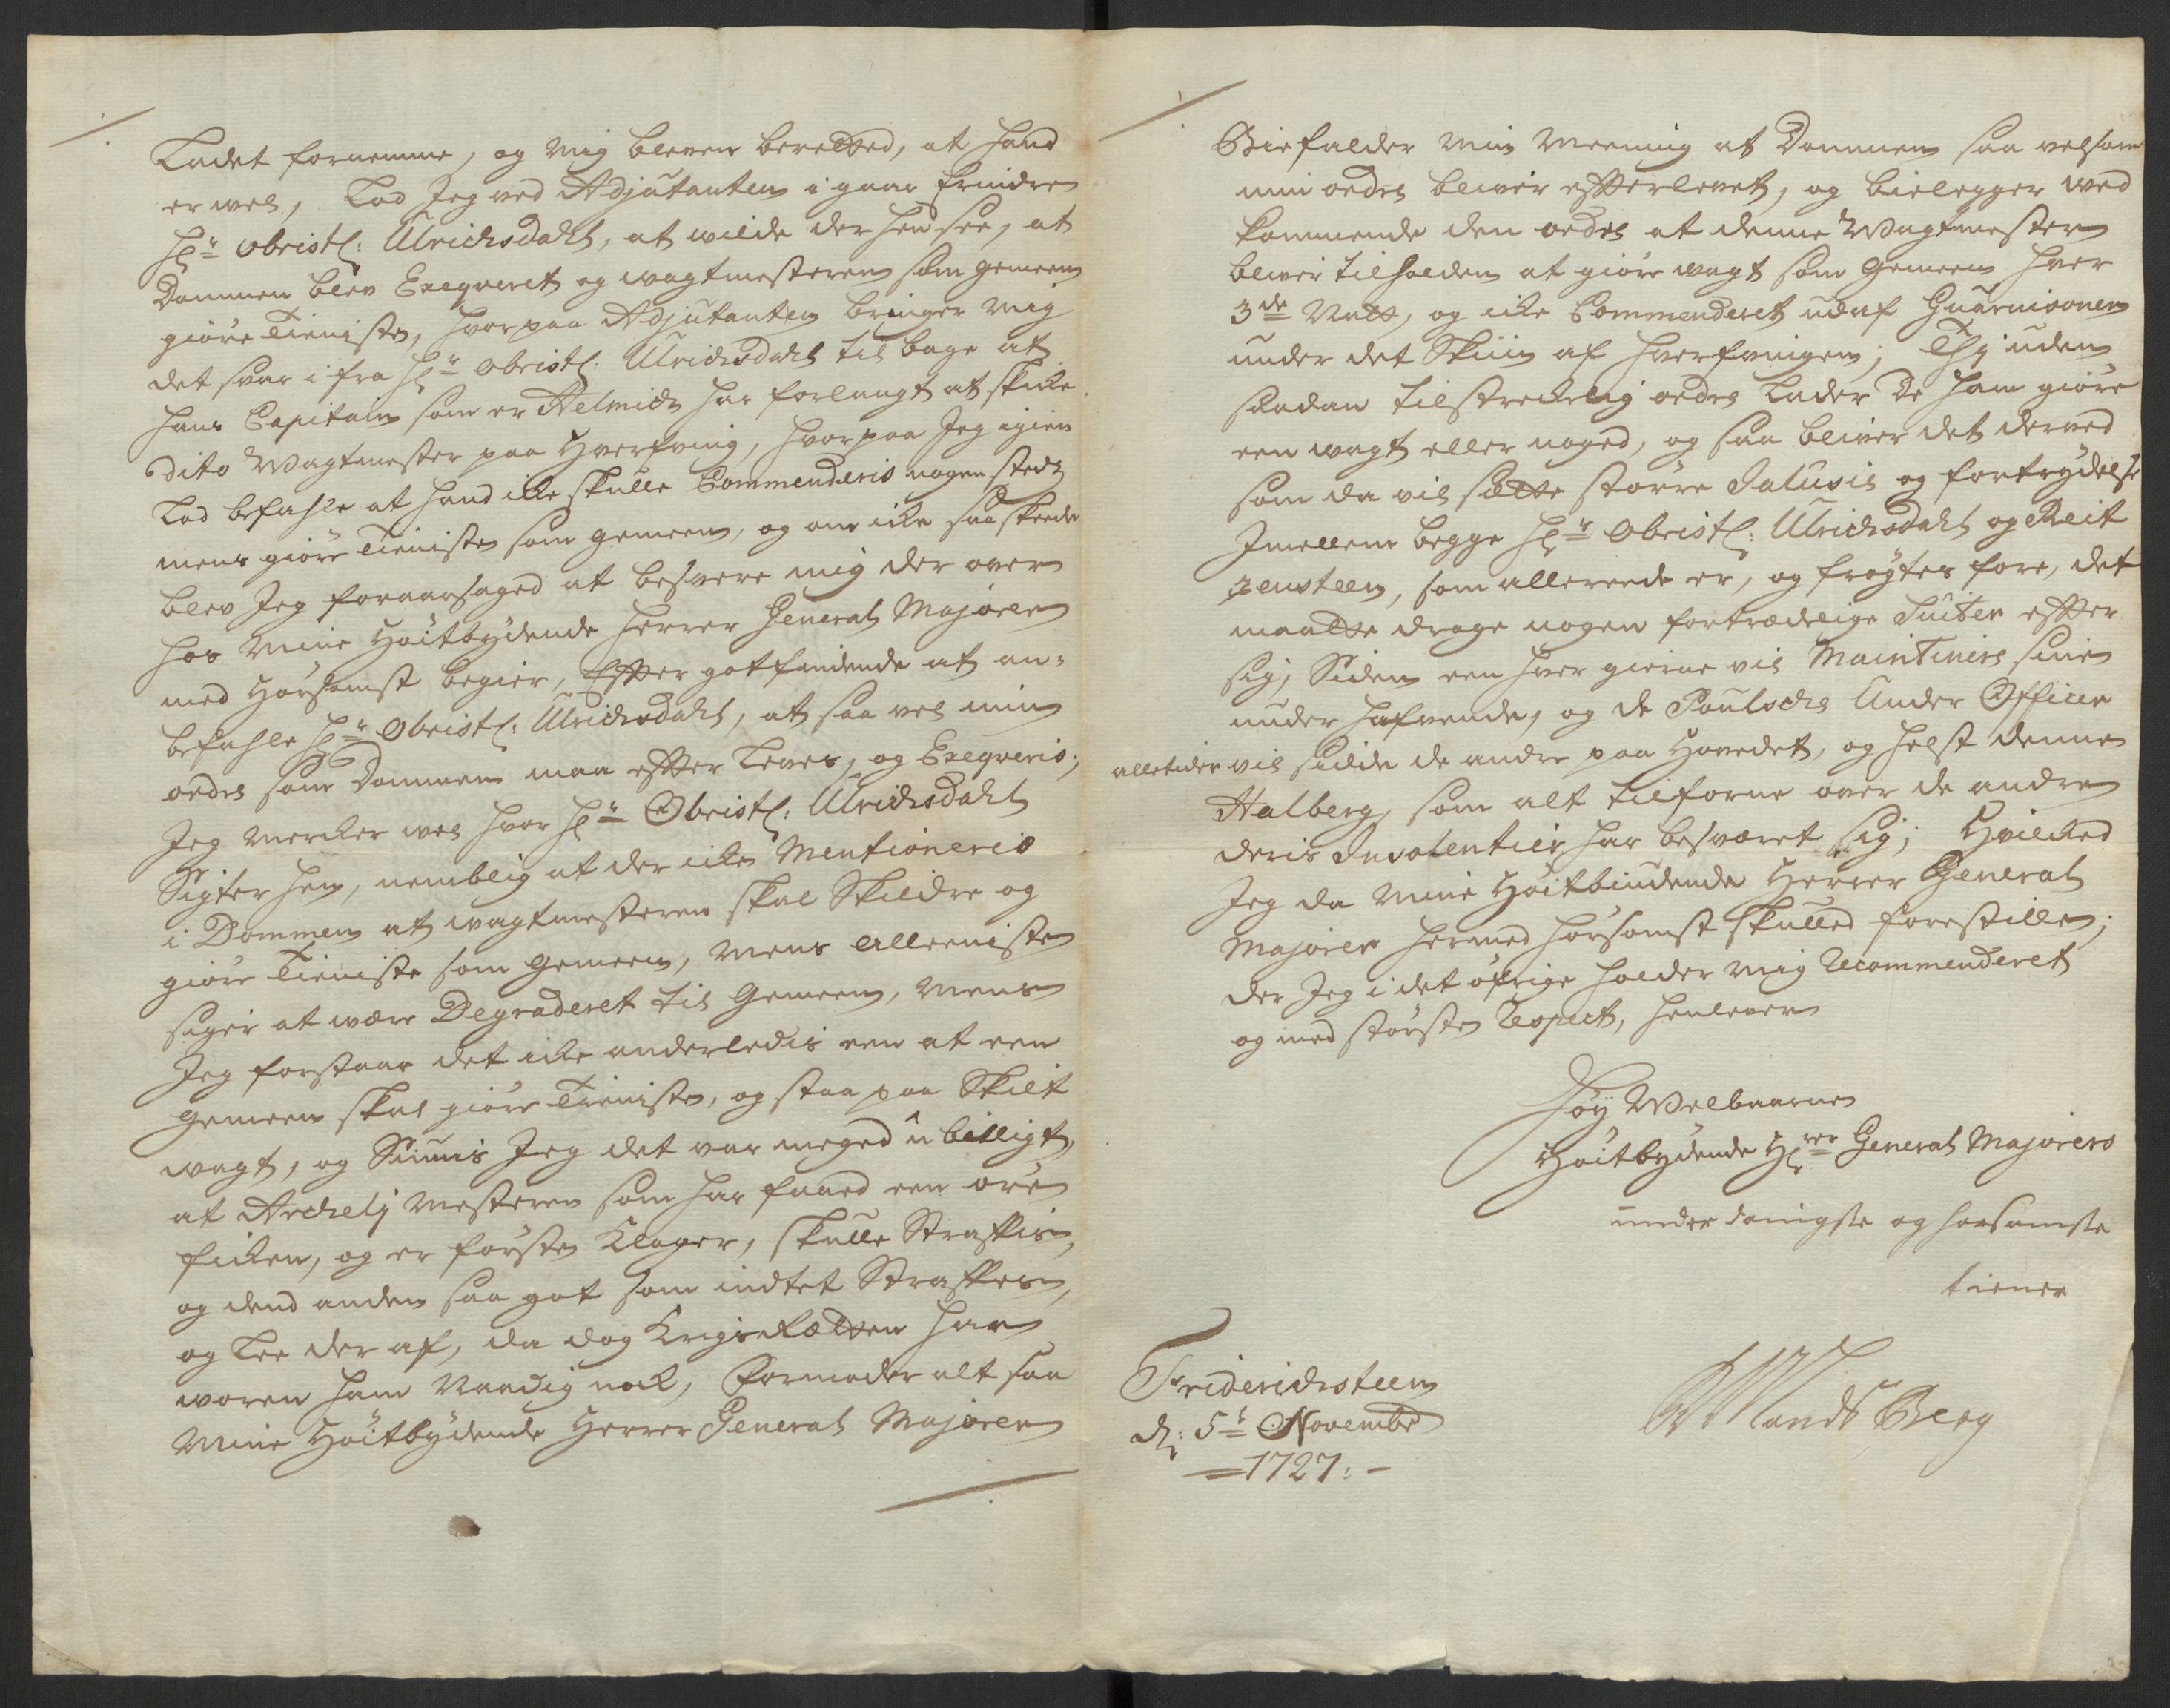 Ladet fornemme, og mig bleven beretted, at hand
er vel, Lod Jeg ved Adjutanten i gaar Erindre
Hr: Obristl: Ulrichsdahl, at wilde derhen see, at
Dommen blev Exeqveret og wagtmesteren som gemeen
giöre Tieniste, hvorpaa Adjutanten bringer mig
det svar i fra Hr: Obristl: Ulrichsdahl til bage at
hans Capitain som er Helmich har forlangt at skike
dito Wagtmester paa Hverfning, hvorpaa Jeg igien
Lod befahle at hand ike skulle Commenderis nogen steds
mens giöre Tieniste som gemeen, og om ike saa skeede
blev Jeg foraarsaged at besvere mig der over
hos Mine Höitbydende Herrer General Majorer
med Hörsomst begier, Effter gotfindende at an-
befahle Hr: Obristl: Ulrichsdahl, at saa vel min
ordre som Dommen maa effter Leves, og Exeqveris;
Jeg mercker wel hvor Hr: Obristl: Ulrichsdahl
Sigter hen, nemblig at der icke Mentioneris
i Dommen at wagtmesteren skal Skildre og
giöre Tieniste som gemeen, mens alleeniste
siger at være Degraderet til Gemeen, mens
Jeg forstaar det icke anderledis een at een
gemeen skal giöre Tieniste, og staa paa Skilt
wagt, og Siunis Jeg det var meged u billigt,
at Archelj Mesteren som har faaed een öre
ficken, og er förste Klager, skulle Straffis,
og dend anden saa got som indtet Straffes,
og Lee der af, da dog KrigsRætten har
woren ham Naadig nock, Formoder alt saa
Mine Höitbydende Herrer General Majorer
Biefalder min Meening at Dommen saa velsom
min ordre bliver effterlevet, og bielegger wed
kommende den ordre at denne Wagtmester
bliver tilholden at giöre wagt som Gemeen hver
3de Natt, og icke Commenderet udaf Guarnisonen
under det Skiin af Hverfningen; Thj uden
saadan tilstreckelig ordre Lader De ham giöre
een wagt eller noged, og saa bliver det derved
som da vil sætte större Jalusie og fortrydelse
Imellem begge Hr: Obristl: Ulrichsdahl og Reit
zensteen, som allereede er, og frögtes fore, det
maatte drage nogen fortrædelige Suiter effter
sig, Siden een hver gierne vil Maintinere sine
under hafvende, og de Poulsche Under Officer
alletider vil sidde de andre paa Hovedet, og helst denne
Halberg, som alt tilforne over de andre
deris Insolentier har besværet sig; Hvilcked
Jeg da mine Höitbiudende Herrer General
Majorer hermed hörsomst skulled forestille;
der Jeg i det öfrige holder mig Recommenderet
og med störste Respect, henlever
Höy Welbaarne
Höitbydende Hrer General Majorers
underdanigste og horsamste
tiener
Landsberg
Friderichsteen
d: 5t Novembr
1727: